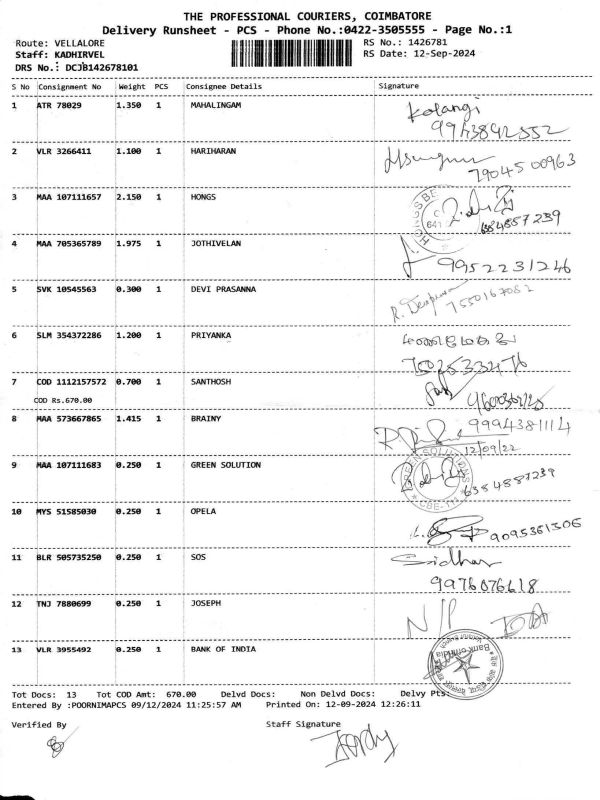 THE PROFESSIONAL COURIERS, COIMBATORE
Delivery Runsheet - PCS - Phone No.:0422-3505555 - Page No.:1
Route: VELLALORE RS No.: 1426781
Staff: KADHIRVEL RS Date: 12-Sep-2024
DRS No.: DCJB142678101
S No Consignment No Weight PCS Consignee Details Signature
1 ATR 78029 1.350 1 MAHALINGAM Kolangi
9943892552
2 VLR 3266411 1.100 1 HARIHARAN
7904500963
3 MAA 107111657 2.150 1 HONGS
6384887239
4 MAA 705365789 1.975 1 JOTHIVELAN
9952231246
5 SVK 10545563 0.300 1 DEVI PRASANNA
7550167082
6 SLM 354372286 1.200 1 PRIYANKA
7502533476
7 COD 1112157572 0.700 1 SANTHOSH
COD Rs.670.00
8 MAA 573667865 1.415 1 BRAINY 9994381114
12/09/22
9 MAA 107111683 0.250 1 GREEN SOLUTION GREEN SOLUTIONS
6384887239
10 MYS 51585030 0.250 1 OPELA
9095361306
11 BLR 505735250 0.250 1 SOS Sridhar
9976076618
12 TNJ 7880699 0.250 1 JOSEPH N/P
13 VLR 3955492 0.250 1 BANK OF INDIA Bank of India
Tot Docs: 13 Tot COD Amt: 670.00 Delvd Docs: Non Delvd Docs: Delvy Pts:
Entered By :POORNIMAPCS 09/12/2024 11:25:57 AM Printed On: 12-09-2024 12:26:11
Verified By Staff Signature